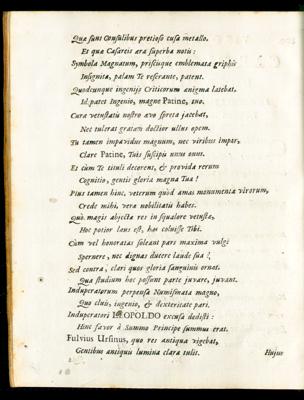 Quæ sunt Consulibus pretioso cusa metallo.
Et qua Cæsareis ara superba notis:
Symbola Magnatum, priscique emblemata gryphis
Insignita, palam Te reserante, patent.
Quodcunque ingenijs Criticorum ænigma latebat,
Id patet Ingenio, magne Patine, tuo.
Cura vetustatis nostro ævo spreta jacebat,
Nec tulerat gratam doctior ullus opem.
Tu tamen impavidus magnum, nec viribus impar,
Clare Patine, Tuis suscipis unus onus.
Et cùm Te tituli decorent, & provida rerum
Cognitio, gentis gloria magna Tuæ!
Plus tamen hinc, veterum quòd amas monumenta virorum,
Crede mihi, vera nobilitatis habes.
Quò magis abjecta res in squalore vetusta,
Hoc potior laus est, has coluisse Tibi.
Cùm vel honoratas soleant pars maxima vulgi
Spernere, nec dignas ducere laude sua!
Sed contra, clari quos gloria sanguinis ornat,
Quæ studium hoc possunt parte juvare, juvant.
Induperatorum perpensa Numismata magno,
Quo cluis, ingenio, & dexteritate pari.
Induperatori LEOPOLDO excusa dedisti:
Hinc favor à Summo Principe summus erat.
Fulvius Ursinus, quo res antiqua vigebat,
Gentibus antiquis lumina clara tulit.
Hujus